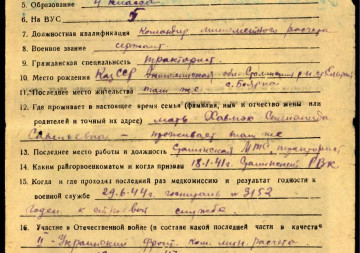 5. Образование 4 класса
6. На ВУС 5
7. Должностная квалификация Командир минометного расчета
8. Военное звание сержант
9. Гражданская специальность тракторист
10. Место рождения Каз ССР Акмолинская обл
11. Последнее место жительства там же
12. Где проживает в настоящее время семья (фамилия, имя и отчество жены или
родителей и точный их адрес) мать
проживает там же
13. Последнее место работы и должность МТС тракторист
14. Каким райгорвоенкоматом и когда призван 18-1-41г. РВК
15. Когда и где проходил последний раз медкомиссию и результат годности к
военной службе 29.6.44г. госпиталь № 3152
Годен к строевой службе.
16. Участие в Отечественной войне (в составе какой последней части в качестве
Украинский фронт. ком. мин. расчета.